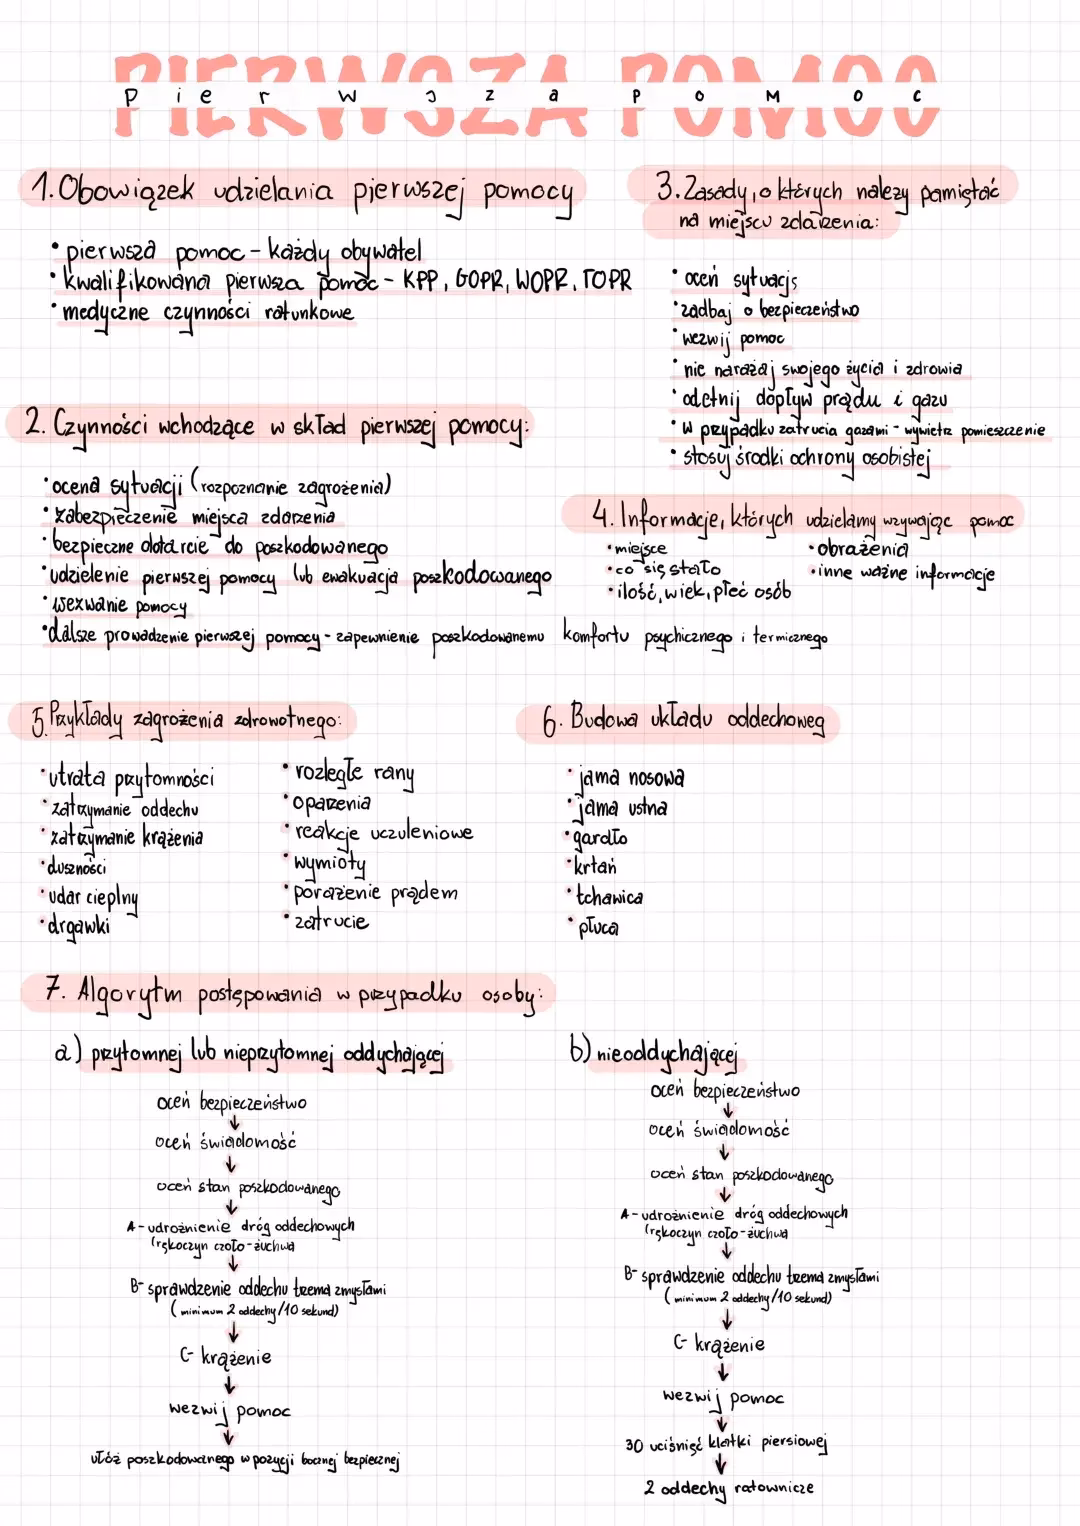 PIERWSZA POMOC
Pierwsza Pomoc
1. Obowiązek udzielania pierwszej pomocy
• pierwsza pomoc - każdy obywatel
• kwalifikowana pierwsza pomoc - KPP, GOPR, WOPR, TOPR
• medyczne czynności ratunkowe
2. Czynności wchodzące w skład pierwszej pomocy:
• ocena sytuacji (rozpoznanie zagrożenia)
• zabezpieczenie miejsca zdarzenia
• bezpieczne dotarcie do poszkodowanego
• udzielenie pierwszej pomocy lub ewakuacja poszkodowanego
• wezwanie pomocy
• dalsze prowadzenie pierwszej pomocy - zapewnienie poszkodowanemu komfortu psychicznego i termicznego
3. Zasady, o których należy pamiętać
na miejscu zdarzenia:
• oceń sytuację
• zadbaj o bezpieczeństwo
• wezwij pomoc
• nie narażaj swojego życia i zdrowia
• odetnij dopływ prądu i gazu
• w przypadku zatrucia gazami - wywietrz pomieszczenie
• stosuj środki ochrony osobistej
4. Informacje, których udzielamy wzywając pomoc
• miejsce
• co się stało
• ilość, wiek, płeć osób
• obrażenia
• inne ważne informacje
5. Przykłady zagrożenia zdrowotnego:
• utrata przytomności
• zatrzymanie oddechu
• zatrzymanie krążenia
• duszności
• udar cieplny
• drgawki
• rozległe rany
• oparzenia
• reakcje uczuleniowe
• wymioty
• porażenie prądem
• zatrucie
6. Budowa układu oddechoweg
• jama nosowa
• jama ustna
• gardło
• krtań
• tchawica
• płuca
7. Algorytm postępowania w przypadku osoby:
a) przytomnej lub nieprzytomnej oddychającej
oceń bezpieczeństwo
↓
oceń świadomość
↓
oceń stan poszkodowanego
↓
A - udrożnienie dróg oddechowych
(rękoczyn czoło-żuchwa
↓
B- sprawdzenie oddechu trzema zmysłami
(minimum 2 oddechy/10 sekund)
↓
C- krążenie
↓
wezwij pomoc
↓
ułóż poszkodowanego w pozycji bocznej bezpiecznej
b) nieoddychającej
oceń bezpieczeństwo
↓
oceń świadomość
↓
oceń stan poszkodowanego
↓
A - udrożnienie dróg oddechowych
(rękoczyn czoło-żuchwa
↓
B- sprawdzenie oddechu trzema zmysłami
(minimum 2 oddechy/10 sekund)
↓
C- krążenie
↓
wezwij pomoc
↓
30 uciśnięć klatki piersiowej
↓
2 oddechy ratownicze